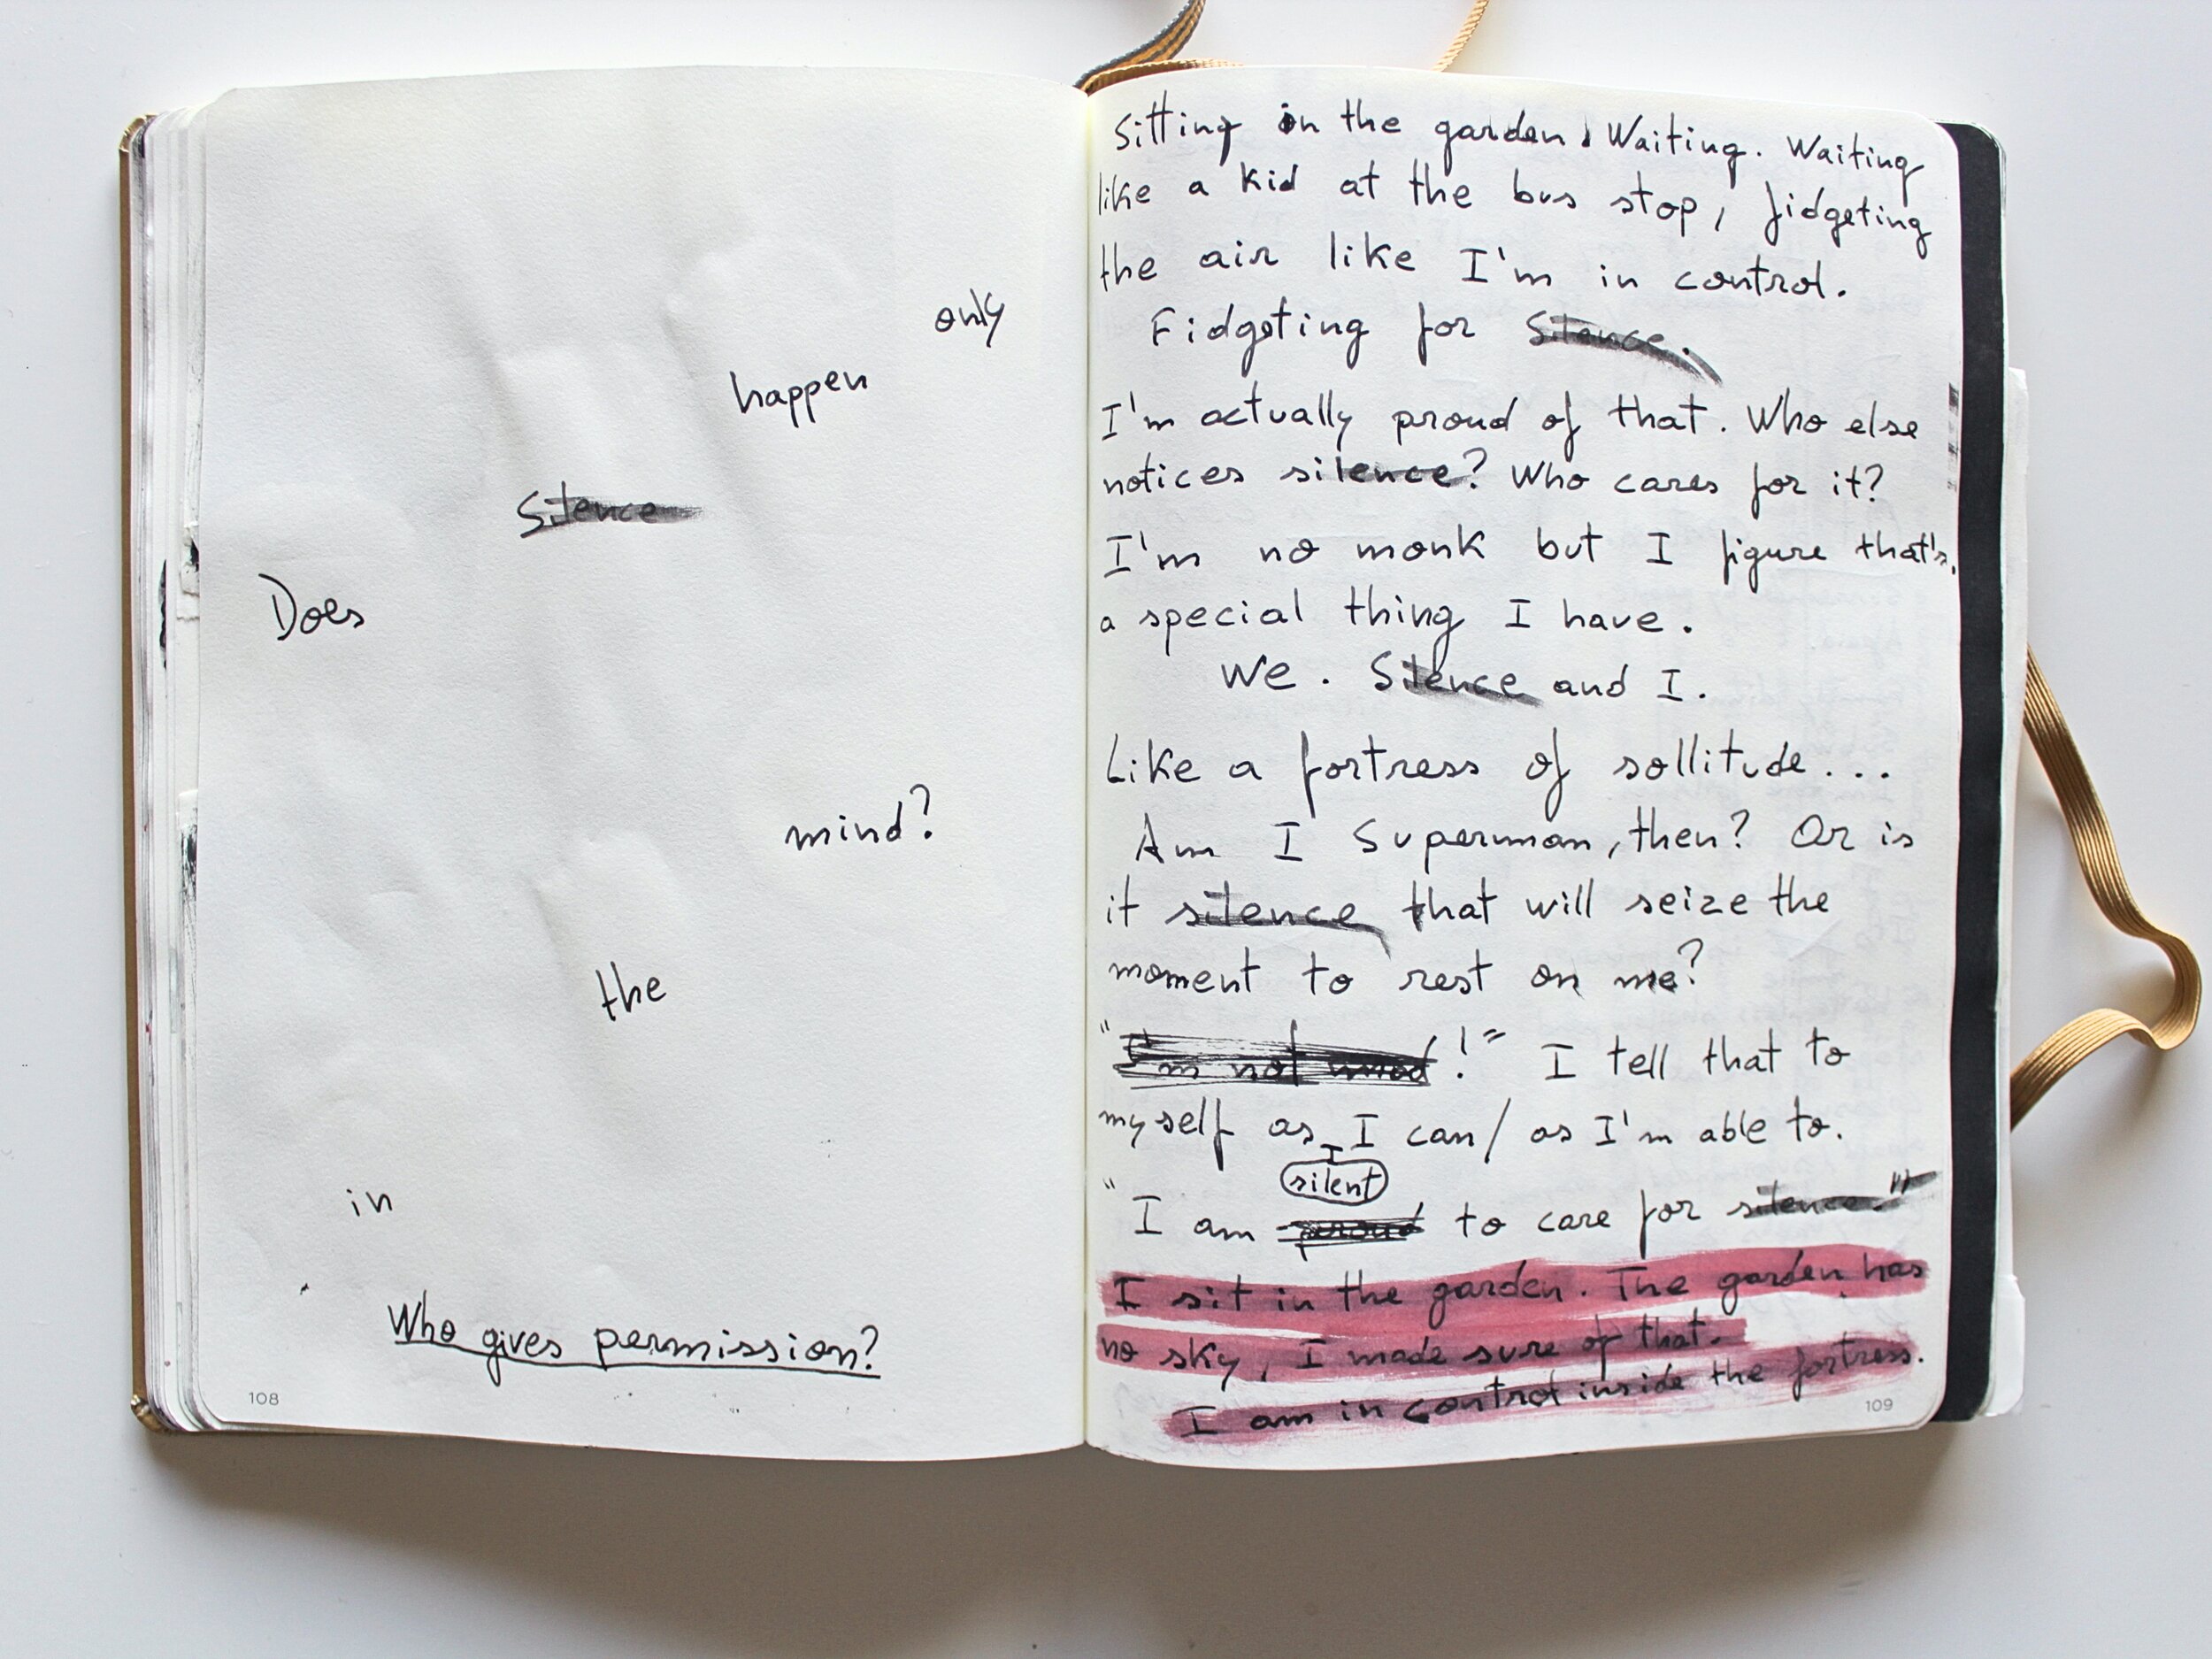 Does
Silence
happen
only
in
the
mind?
Who gives permission?
108
Sitting in the garden. Waiting. Waiting
like a kid at the bus stop, fidgeting
the air like I'm in control.
Fidgeting for Silence.
I'm actually proud of that. Who else
notices silence? Who cares for it?
I'm no monk but I figure that's
a special thing I have.
We. Silence and I.
Like a fortress of sollitude...
Am I Superman, then? Or is
it silence that will seize the
moment to rest on me?
"I'm not mad!" I tell that to
myself as I can/ as I'm able to.
silent
"I am proud to care for silence."
I sit in the garden. The garden has
no sky, I made sure of that.
I am in control inside the fortress.
109